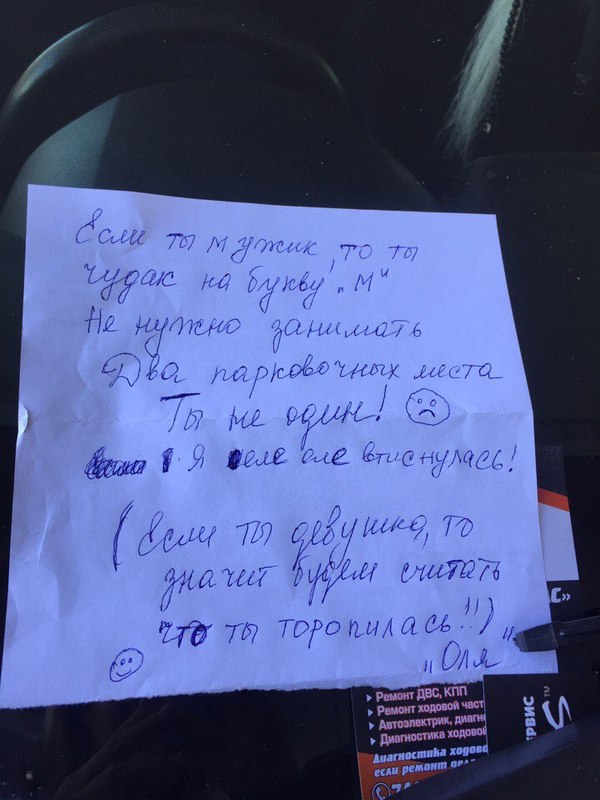 Если ты мужик, то ты
чудак на букву „М"
Не нужно занимать
Два парковочных места
Ты не один!
Я еле еле втиснулась!
(Если ты девушка, то
значит будем считать
что ты торопилась!!)
„Оля"
С»
Ремонт ДВС, КПП
Ремонт ходовой част
Автоэлектрик, диагн
Диагностика ходовой
Диагностика ходово
если ремонт дел
РВИС
S
TM